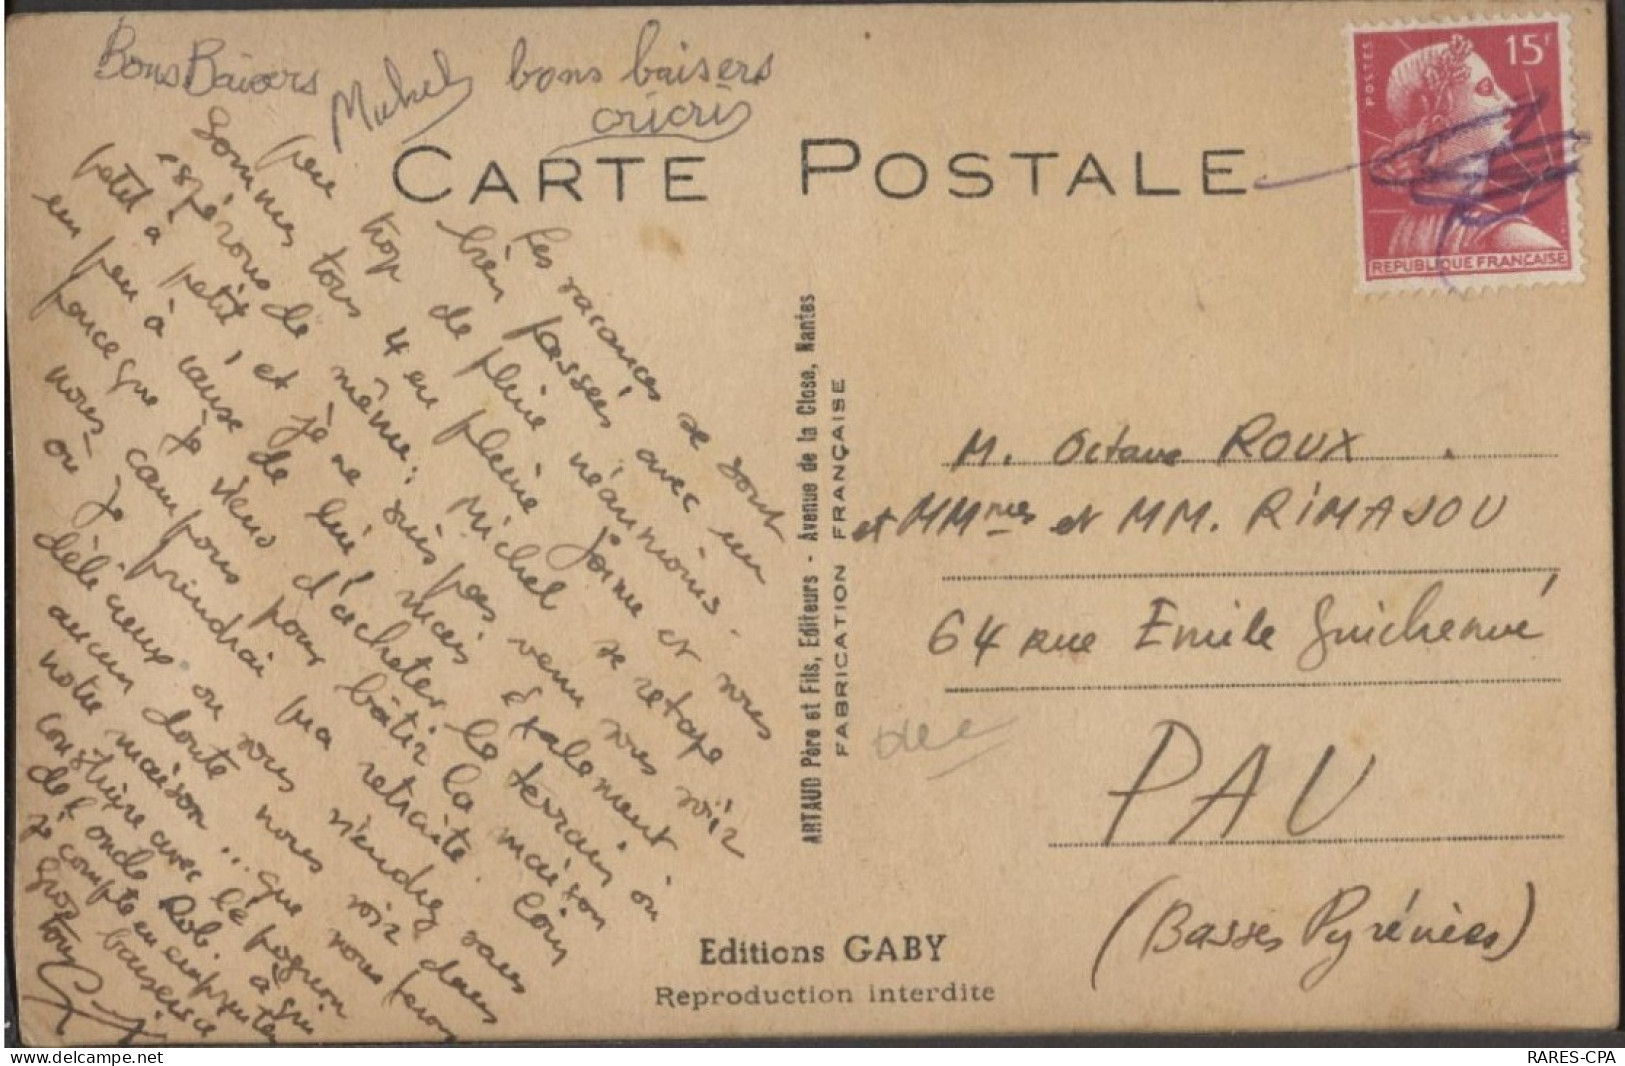 Bons Baisers
Michel
bons baisers
cricris
CARTE POSTALE
POSTES
15F
REPUBLIQUE FRANÇAISE
Les vacances se sont
bien passées avec un
peu trop de pluie néanmoins.
Sommes tous 4 en pleine forme et vous
espérons de même; Michel se retape
petit à petit, et je ne suis pas venu vous voir
un peu à cause de lui, mais également
parce que je viens d'acheter le terrain où
nous campons pour bâtir la maison
où je prendrai ma retraite. Coin
délicieux où vous viendrez sans
aucun doute nous voir dans
notre maison... que nous ferons
construire avec le pognon
de l'oncle Rob. à qui
je compte en emprunter
Gros baisers
tous
ARTAUD Père et Fils, Editeurs - Avenue de la Close, Nantes
FABRICATION FRANÇAISE
M. Octave ROUX
et MMmes et MM. RIMAJOU
64 rue Emile Guichenné
PAU
(Basses Pyrénées)
Editions GABY
Reproduction interdite
delcampe.net
RARES-CPA